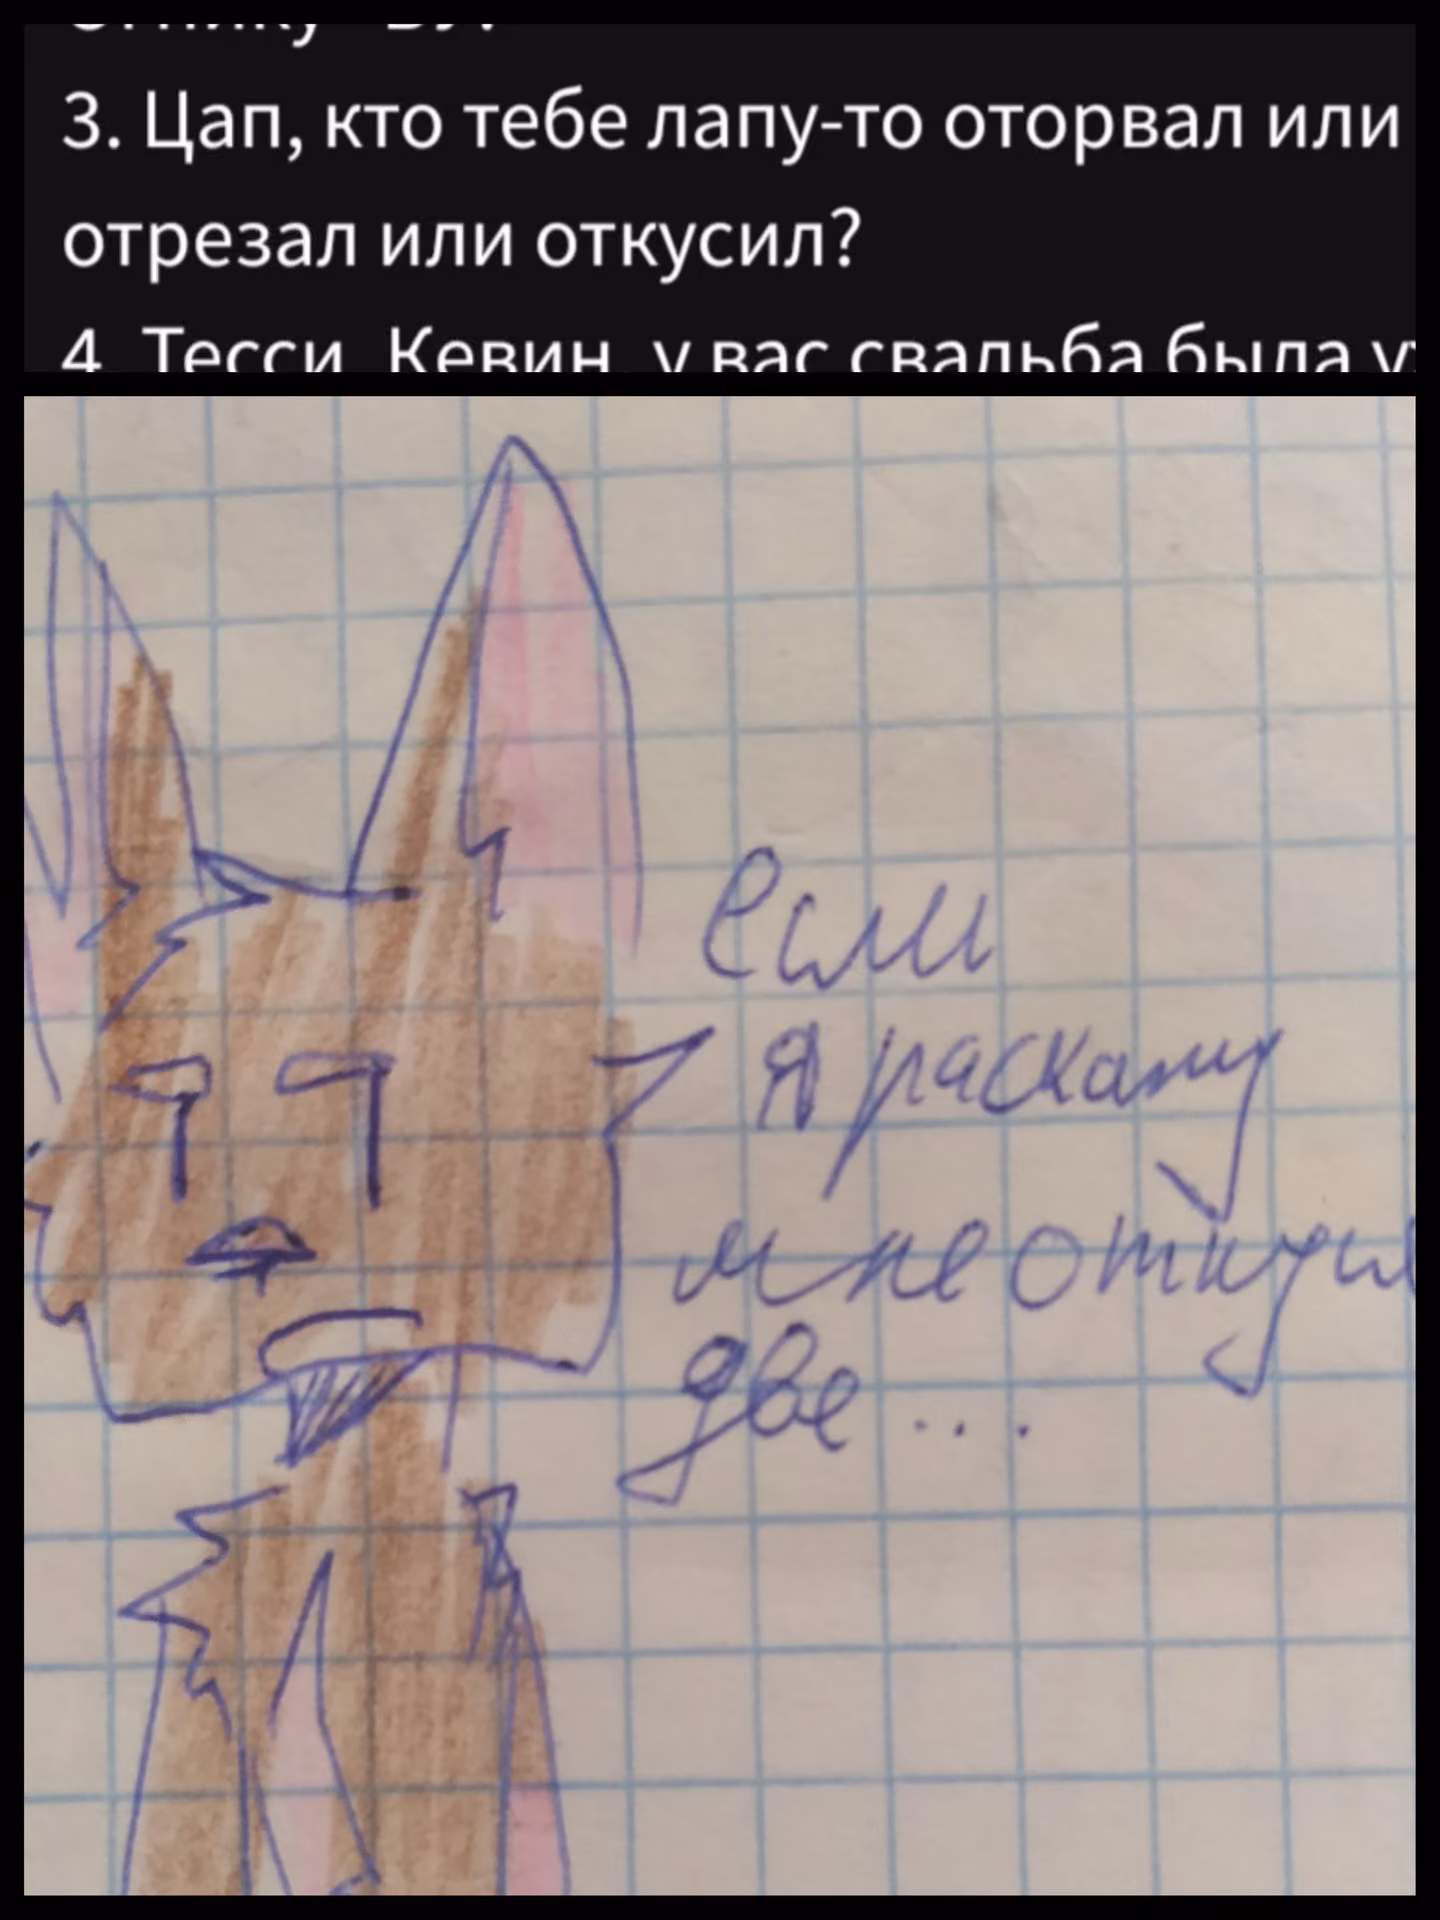 3. Цап, кто тебе лапу-то оторвал или
отрезал или откусил?
4. Тесси, Кевин, у вас свадьба была
Если
я раскажу
мне
две...